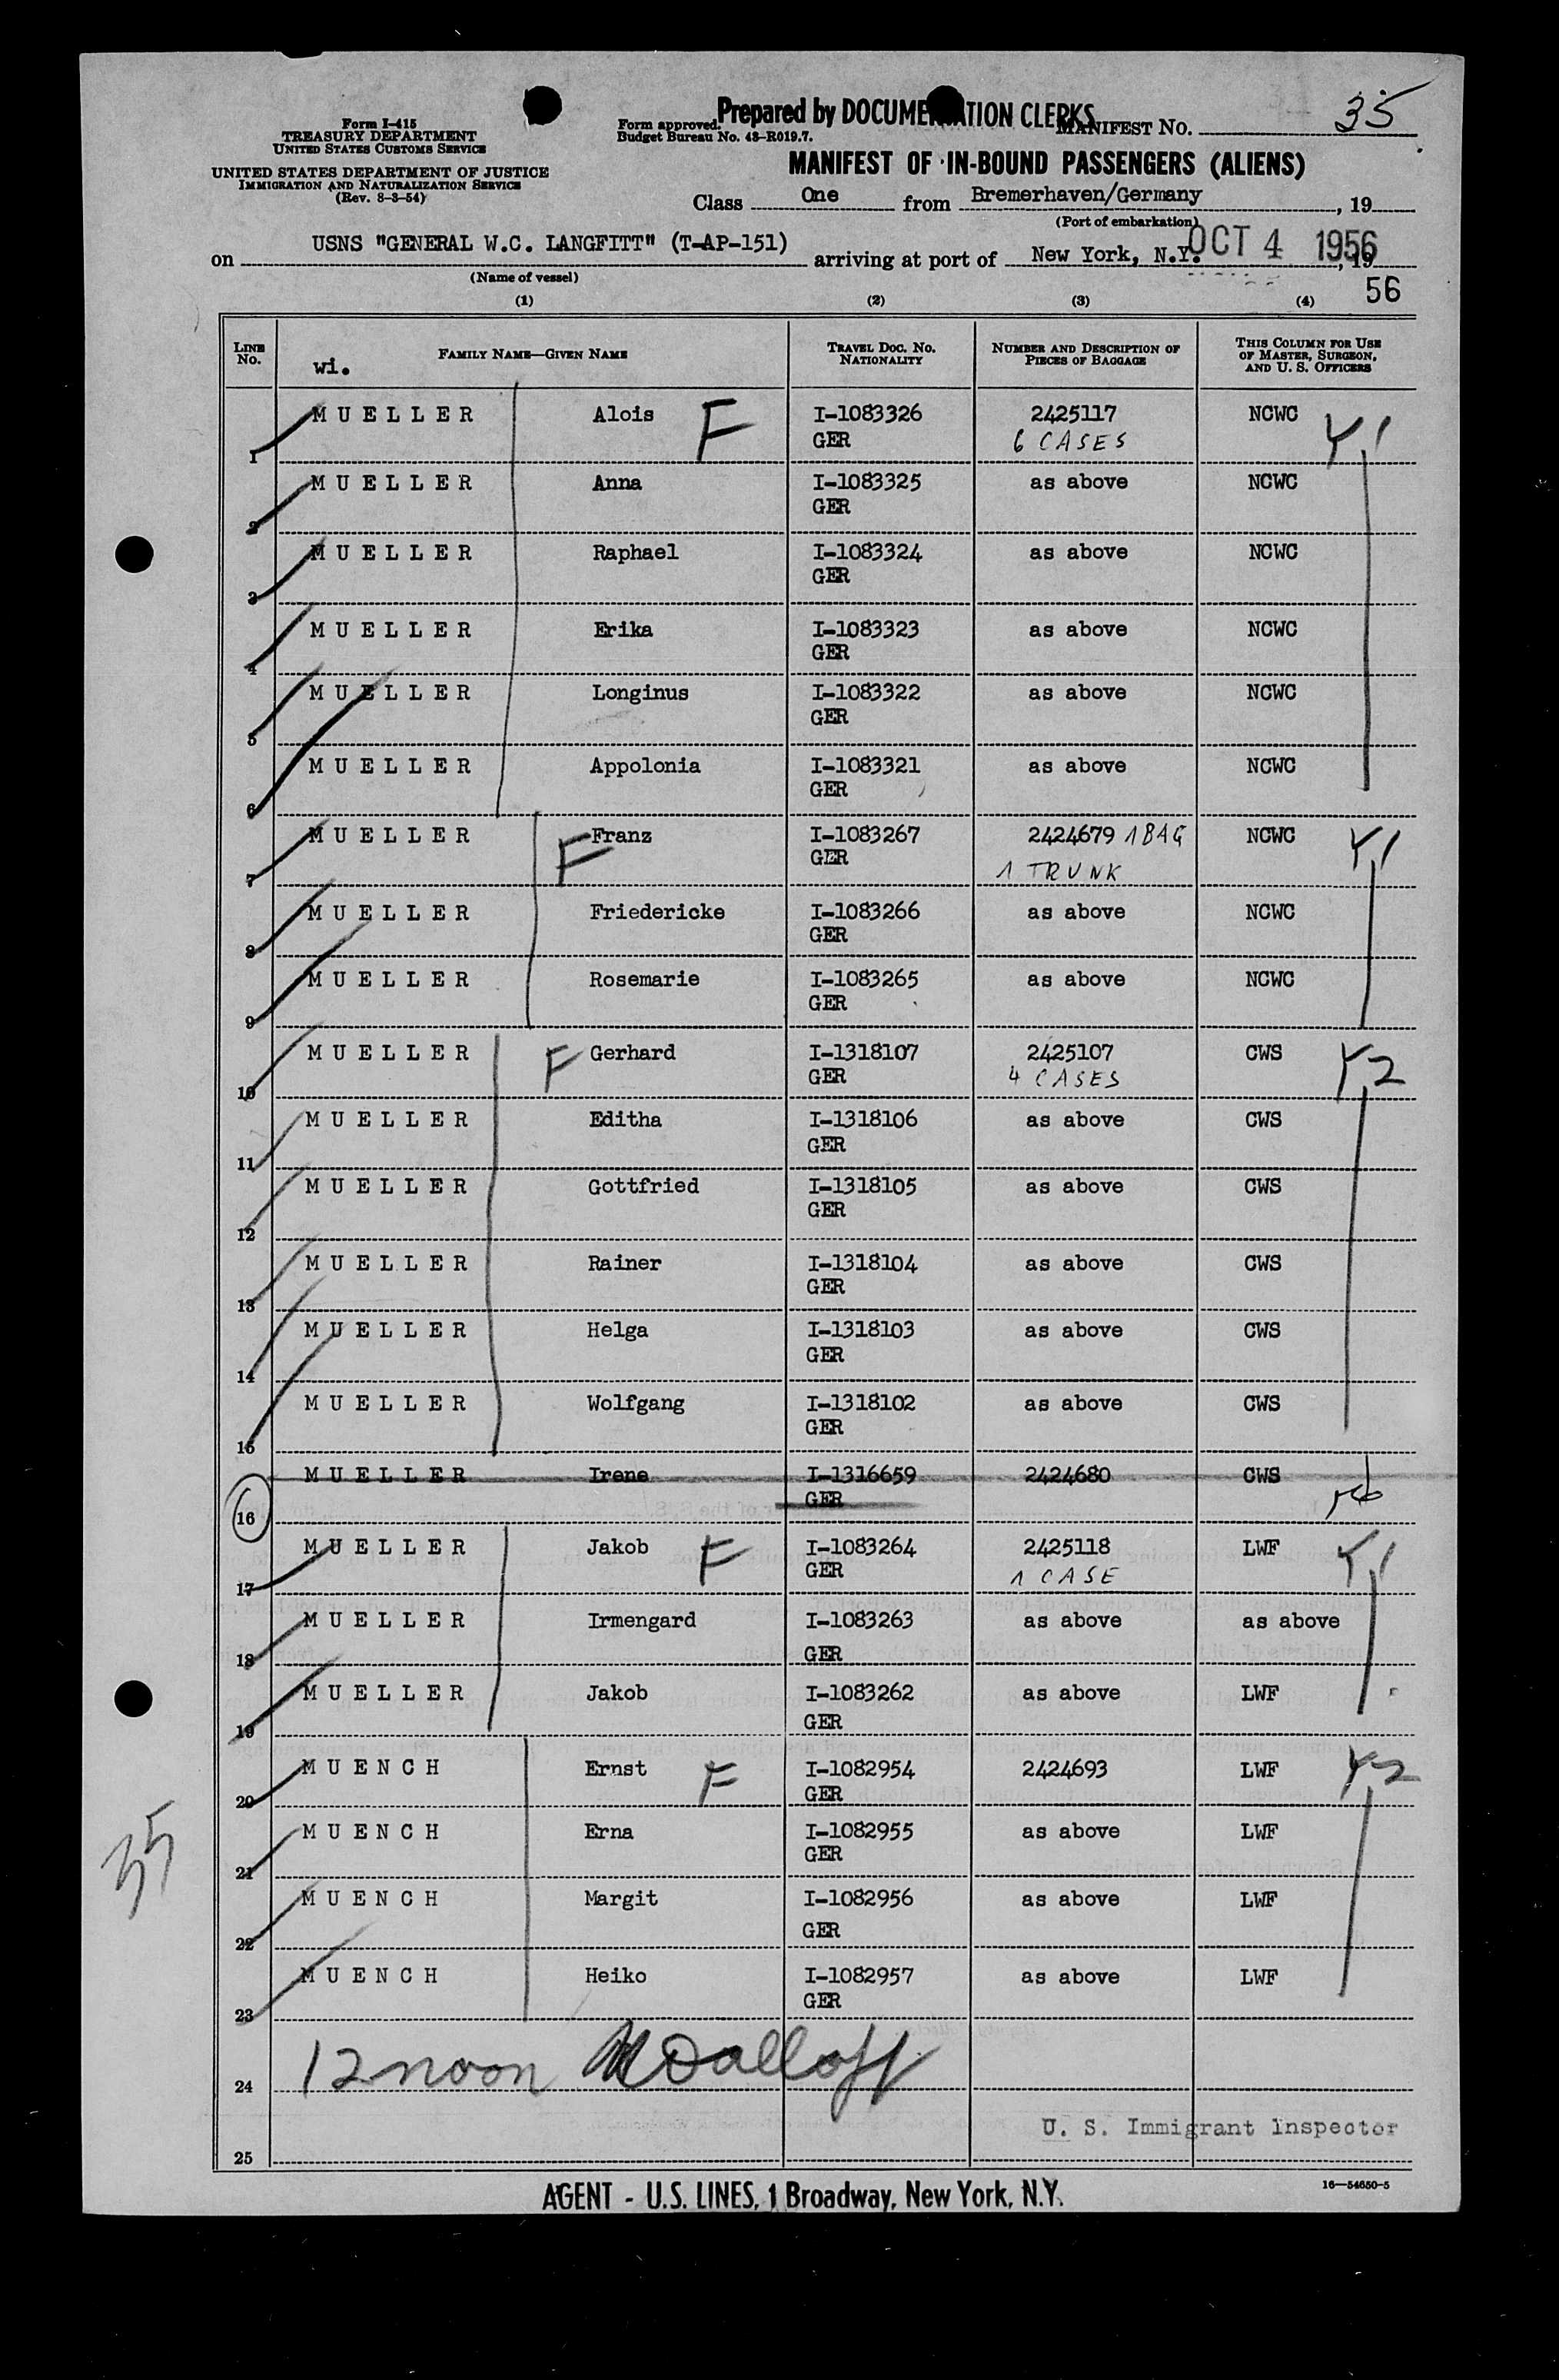 Prepared by DOCUMENTATION CLERKS
Form I-415
TREASURY DEPARTMENT
UNITED STATES CUSTOMS SERVICE
UNITED STATES DEPARTMENT OF JUSTICE
IMMIGRATION AND NATURALIZATION SERVICE
(Rev. 8-3-54)
Form approved.
Budget Bureau No. 43-R019.7.
MANIFEST NO. 35
MANIFEST OF IN-BOUND PASSENGERS (ALIENS)
Class One from Bremerhaven/Germany, 19
(Port of embarkation)
on USNS "GENERAL W.C. LANGFITT" (T-AP-151) arriving at port of New York, N.Y. OCT 4 1956, 19
(Name of vessel)
56
(1) (2) (3) (4)
LINE No. FAMILY NAME—GIVEN NAME TRAVEL DOC. NO. NATIONALITY NUMBER AND DESCRIPTION OF PIECES OF BAGGAGE THIS COLUMN FOR USE OF MASTER, SURGEON, AND U. S. OFFICERS
wi.
1 MUELLER Alois F I-1083326 GER 2425117 6 CASES NCWC Y1
2 MUELLER Anna I-1083325 GER as above NCWC
3 MUELLER Raphael I-1083324 GER as above NCWC
4 MUELLER Erika I-1083323 GER as above NCWC
5 MUELLER Longinus I-1083322 GER as above NCWC
6 MUELLER Appolonia I-1083321 GER as above NCWC
7 MUELLER F Franz I-1083267 GER 2424679 1 BAG 1 TRUNK NCWC Y1
8 MUELLER Friedericke I-1083266 GER as above NCWC
9 MUELLER Rosemarie I-1083265 GER as above NCWC
10 MUELLER F Gerhard I-1318107 GER 2425107 4 CASES CWS Y2
11 MUELLER Editha I-1318106 GER as above CWS
12 MUELLER Gottfried I-1318105 GER as above CWS
13 MUELLER Rainer I-1318104 GER as above CWS
14 MUELLER Helga I-1318103 GER as above CWS
15 MUELLER Wolfgang I-1318102 GER as above CWS
16 MUELLER Irene I-1316659 GER 2424680 CWS
17 MUELLER Jakob F I-1083264 GER 2425118 1 CASE LWF Y1
18 MUELLER Irmengard I-1083263 GER as above as above
19 MUELLER Jakob I-1083262 GER as above LWF
20 MUENCH Ernst F I-1082954 GER 2424693 LWF Y2
21 MUENCH Erna I-1082955 GER as above LWF
22 MUENCH Margit I-1082956 GER as above LWF
23 MUENCH Heiko I-1082957 GER as above LWF
35
24 12 noon
U. S. Immigrant Inspector
25
AGENT - U.S. LINES, 1 Broadway, New York, N.Y.
16—54650-5